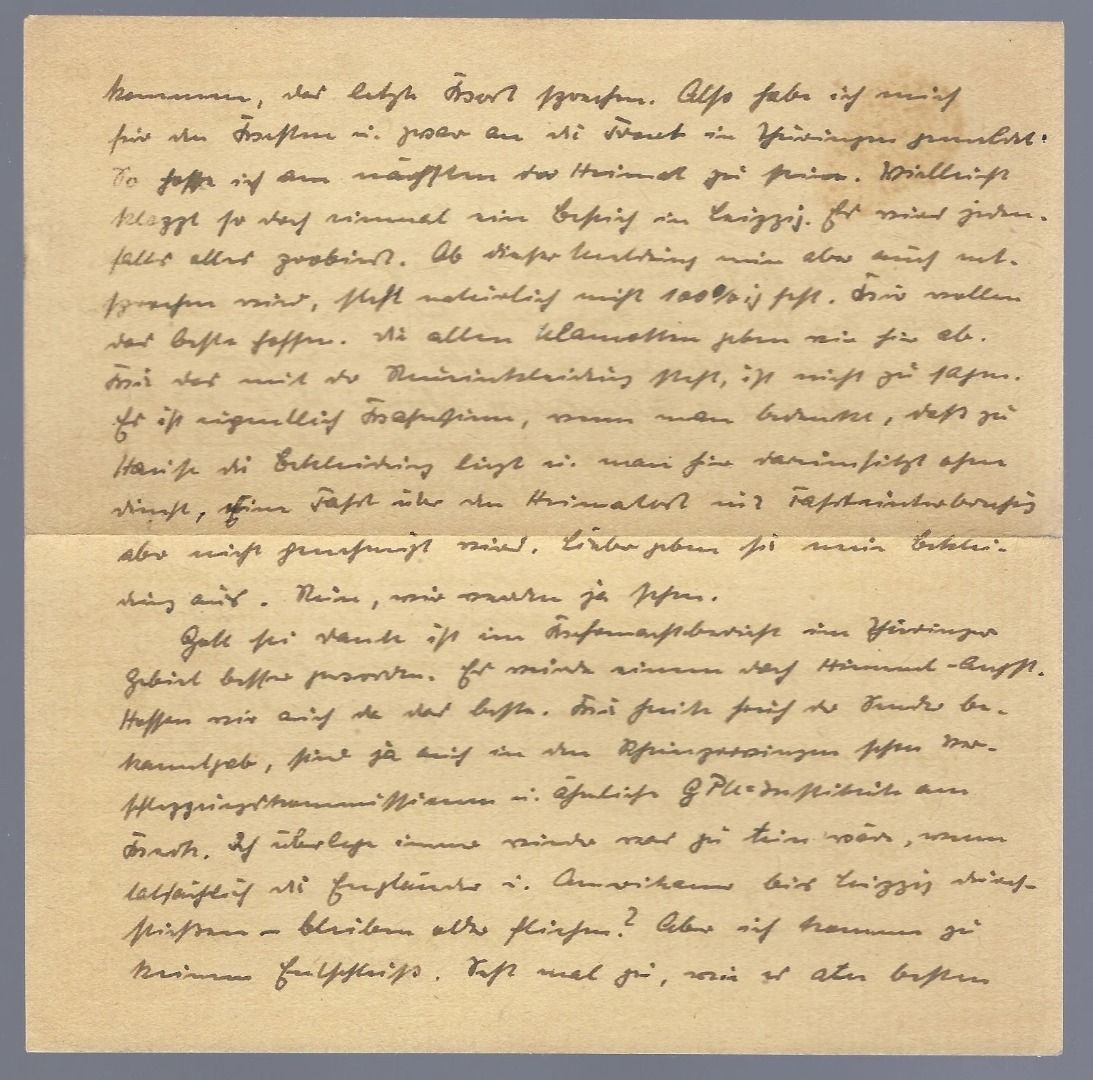 kommen, das letzte Wort sprechen. Also habe ich mich
für den Westen u. zwar an die Front in Thüringen gemeldet.
So hoffe ich am nächsten der Heimat zu sein. Vielleicht
klappt so doch einmal ein Besuch in Leipzig. Es wird jeden-
falls alles probiert. Ob dieser Meldung nun aber auch ent-
sprochen wird, steht natürlich nicht 100%ig fest. Wir wollen
das beste hoffen. Die alten Klamotten geben wir hier ab.
Wie das mit der Neueinkleidung steht, ist nicht zu sagen.
Es ist eigentlich Wahnsinn, wenn man bedenkt, daß zu
Hause die Bekleidung liegt u. man hier darumsitzt ohne
dienst, Eine Fahrt über den Heimatort mit Fahrtunterbrechg
aber nicht genehmigt wird. Lieber geben sie neue Beklei-
dung aus. Nun, wir werden ja sehen.
Gott sei dank ist im Wehrmachtbericht im Thüringer
Gebiet besser geworden. Es würde einem doch Himmel-Angst.
Hoffen wir auch da das beste. Wie heute früh der Sender be-
kanntgab, sind ja auch in den Rheinprovinzen schon Ver-
schleppungskommissionen u. ähnliche GPU=Institute am
Werk. Ich überlege immer wieder was zu tun wäre, wenn
tatsächlich die Engländer u. Amerikaner bis Leipzig durch-
stießen – bleiben oder fliehen? Aber ich komme zu
keinem Entschluß. Seht mal zu, wie es am besten